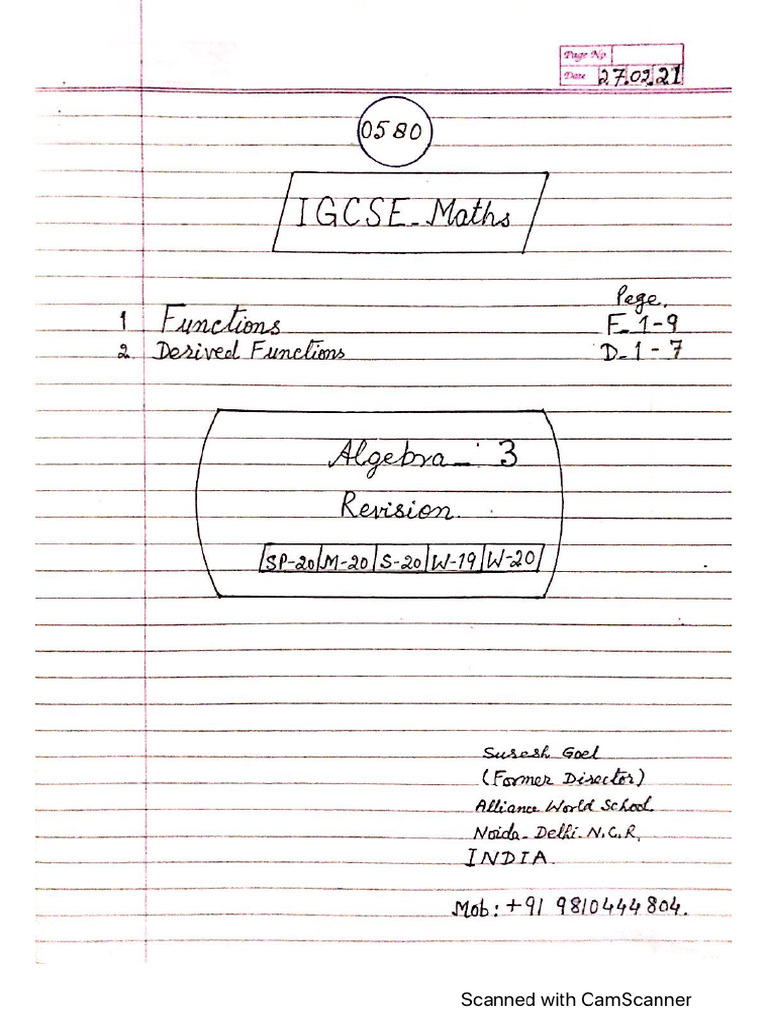 Page No
Date 27.02.21
0580
IGCSE - Maths
Page.
1 Functions F-1-9
2. Derived Functions D-1-7
Algebra - 3
Revision.
SP-20 M-20 S-20 W-19 W-20
Suresh Goel
(Former Director)
Alliance World School.
Noida - Delhi. N.C.R.
INDIA.
Mob: +91 9810444804.
Scanned with CamScanner